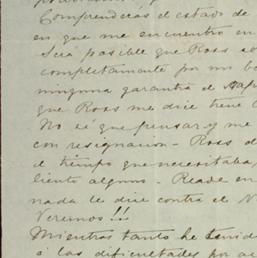 Comprenderas el estado de
en que me encuentro en
Será posible que Ross so
completamente por mi bo
ninguna garantia el Sup
que Ross me dice tiene
No sé que pensar y me
con resignacion - Ross d
el tiempo que necesitaba,
liento alguno - Reade en
nada le dire contra el V
Veremos!!!
Mientras tanto he tenido
á las dificultades por ac